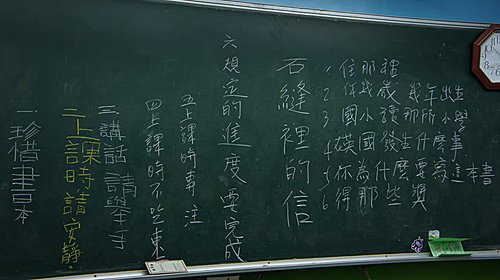 一珍惜書本
二上課時請安靜
三講話請舉手
四上課時不吃東
五上課時事注
六規定的進度要完成
石縫裡的信
1. 住那裡
2. 你幾歲 幾年出生
3. 國小讀那所小學
4. 英國發生什麼事
5. 你為什麼要寫這本書
6. 得那些獎